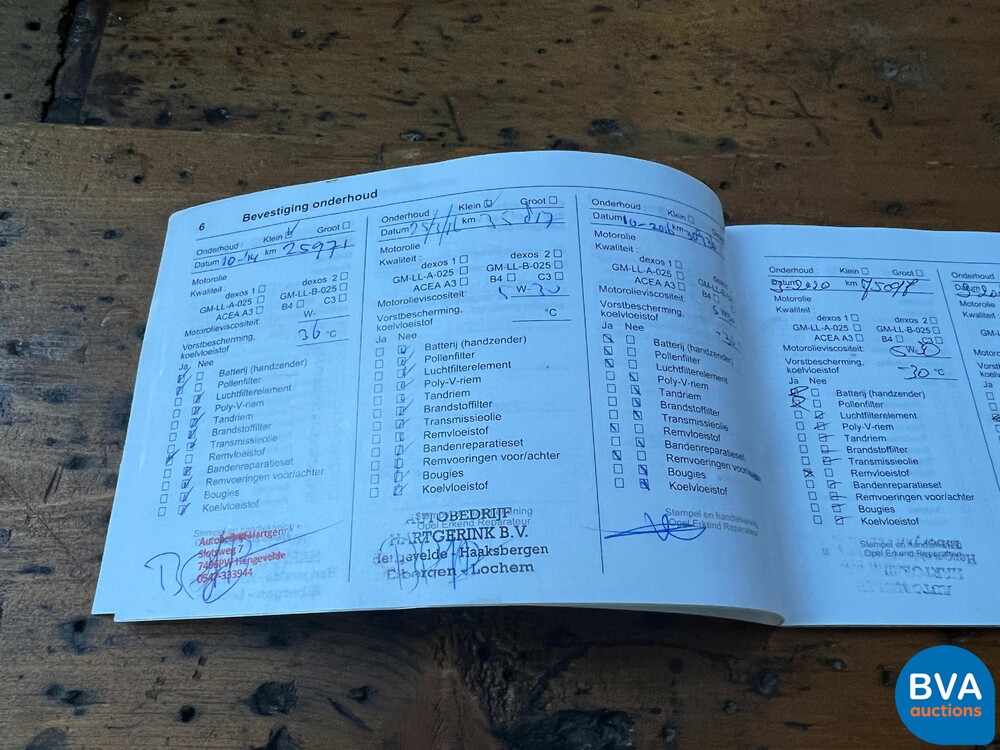 6
Bevestiging onderhoud
Onderhoud : Klein Groot
Datum 10-14 km 25971
Motorolie
Kwaliteit : dexos 1 dexos 2
GM-LL-A-025 GM-LL-B-025
ACEA A3 B4 C3
Motorolieviscositeit: W-
Vorstbescherming,
koelvloeistof 36 °C
Ja Nee
Batterij (handzender)
Pollenfilter
Luchtfilterelement
Poly-V-riem
Tandriem
Brandstoffilter
Transmissieolie
Remvloeistof
Bandenreparatieset
Remvoeringen voor/achter
Bougies
Koelvloeistof
Slotsweg 7
Hengevelde
0547-333944
Onderhoud : Klein Groot
Datum km
Motorolie
Kwaliteit : dexos 1 dexos 2
GM-LL-A-025 GM-LL-B-025
ACEA A3 B4 C3
Motorolieviscositeit: 5 W- 30
Vorstbescherming,
koelvloeistof °C
Ja Nee
Batterij (handzender)
Pollenfilter
Luchtfilterelement
Poly-V-riem
Tandriem
Brandstoffilter
Transmissieolie
Remvloeistof
Bandenreparatieset
Remvoeringen voor/achter
Bougies
Koelvloeistof
Opel Erkend Reparateur
AUTOBEDRIJF
HARTGERINK B.V.
Hengevelde - Haaksbergen
Eibergen - Lochem
Onderhoud : Klein
Datum 10-2016 km
Motorolie
Kwaliteit : dexos 1
GM-LL-A-025
ACEA A3 B4
Motorolieviscositeit:
Vorstbescherming,
koelvloeistof
Ja Nee
Batterij (handzender)
Pollenfilter
Luchtfilterelement
Poly-V-riem
Tandriem
Brandstoffilter
Transmissieolie
Remvloeistof
Bandenreparatieset
Remvoeringen
Bougies
Koelvloeistof
Stempel en handtekening
Opel Erkend Reparateur
Onderhoud : Klein Groot
Datum km
Motorolie
Kwaliteit : dexos 1 dexos 2
GM-LL-A-025 GM-LL-B-025
ACEA A3 B4 C3
Motorolieviscositeit:
Vorstbescherming,
koelvloeistof -30 °C
Ja Nee
Batterij (handzender)
Pollenfilter
Luchtfilterelement
Poly-V-riem
Tandriem
Brandstoffilter
Transmissieolie
Remvloeistof
Bandenreparatieset
Remvoeringen voor/achter
Bougies
Koelvloeistof
Stempel en handtekening
Opel Erkend Reparateur
Onderhoud
Motorolie
Kwaliteit :
BVA
auctions